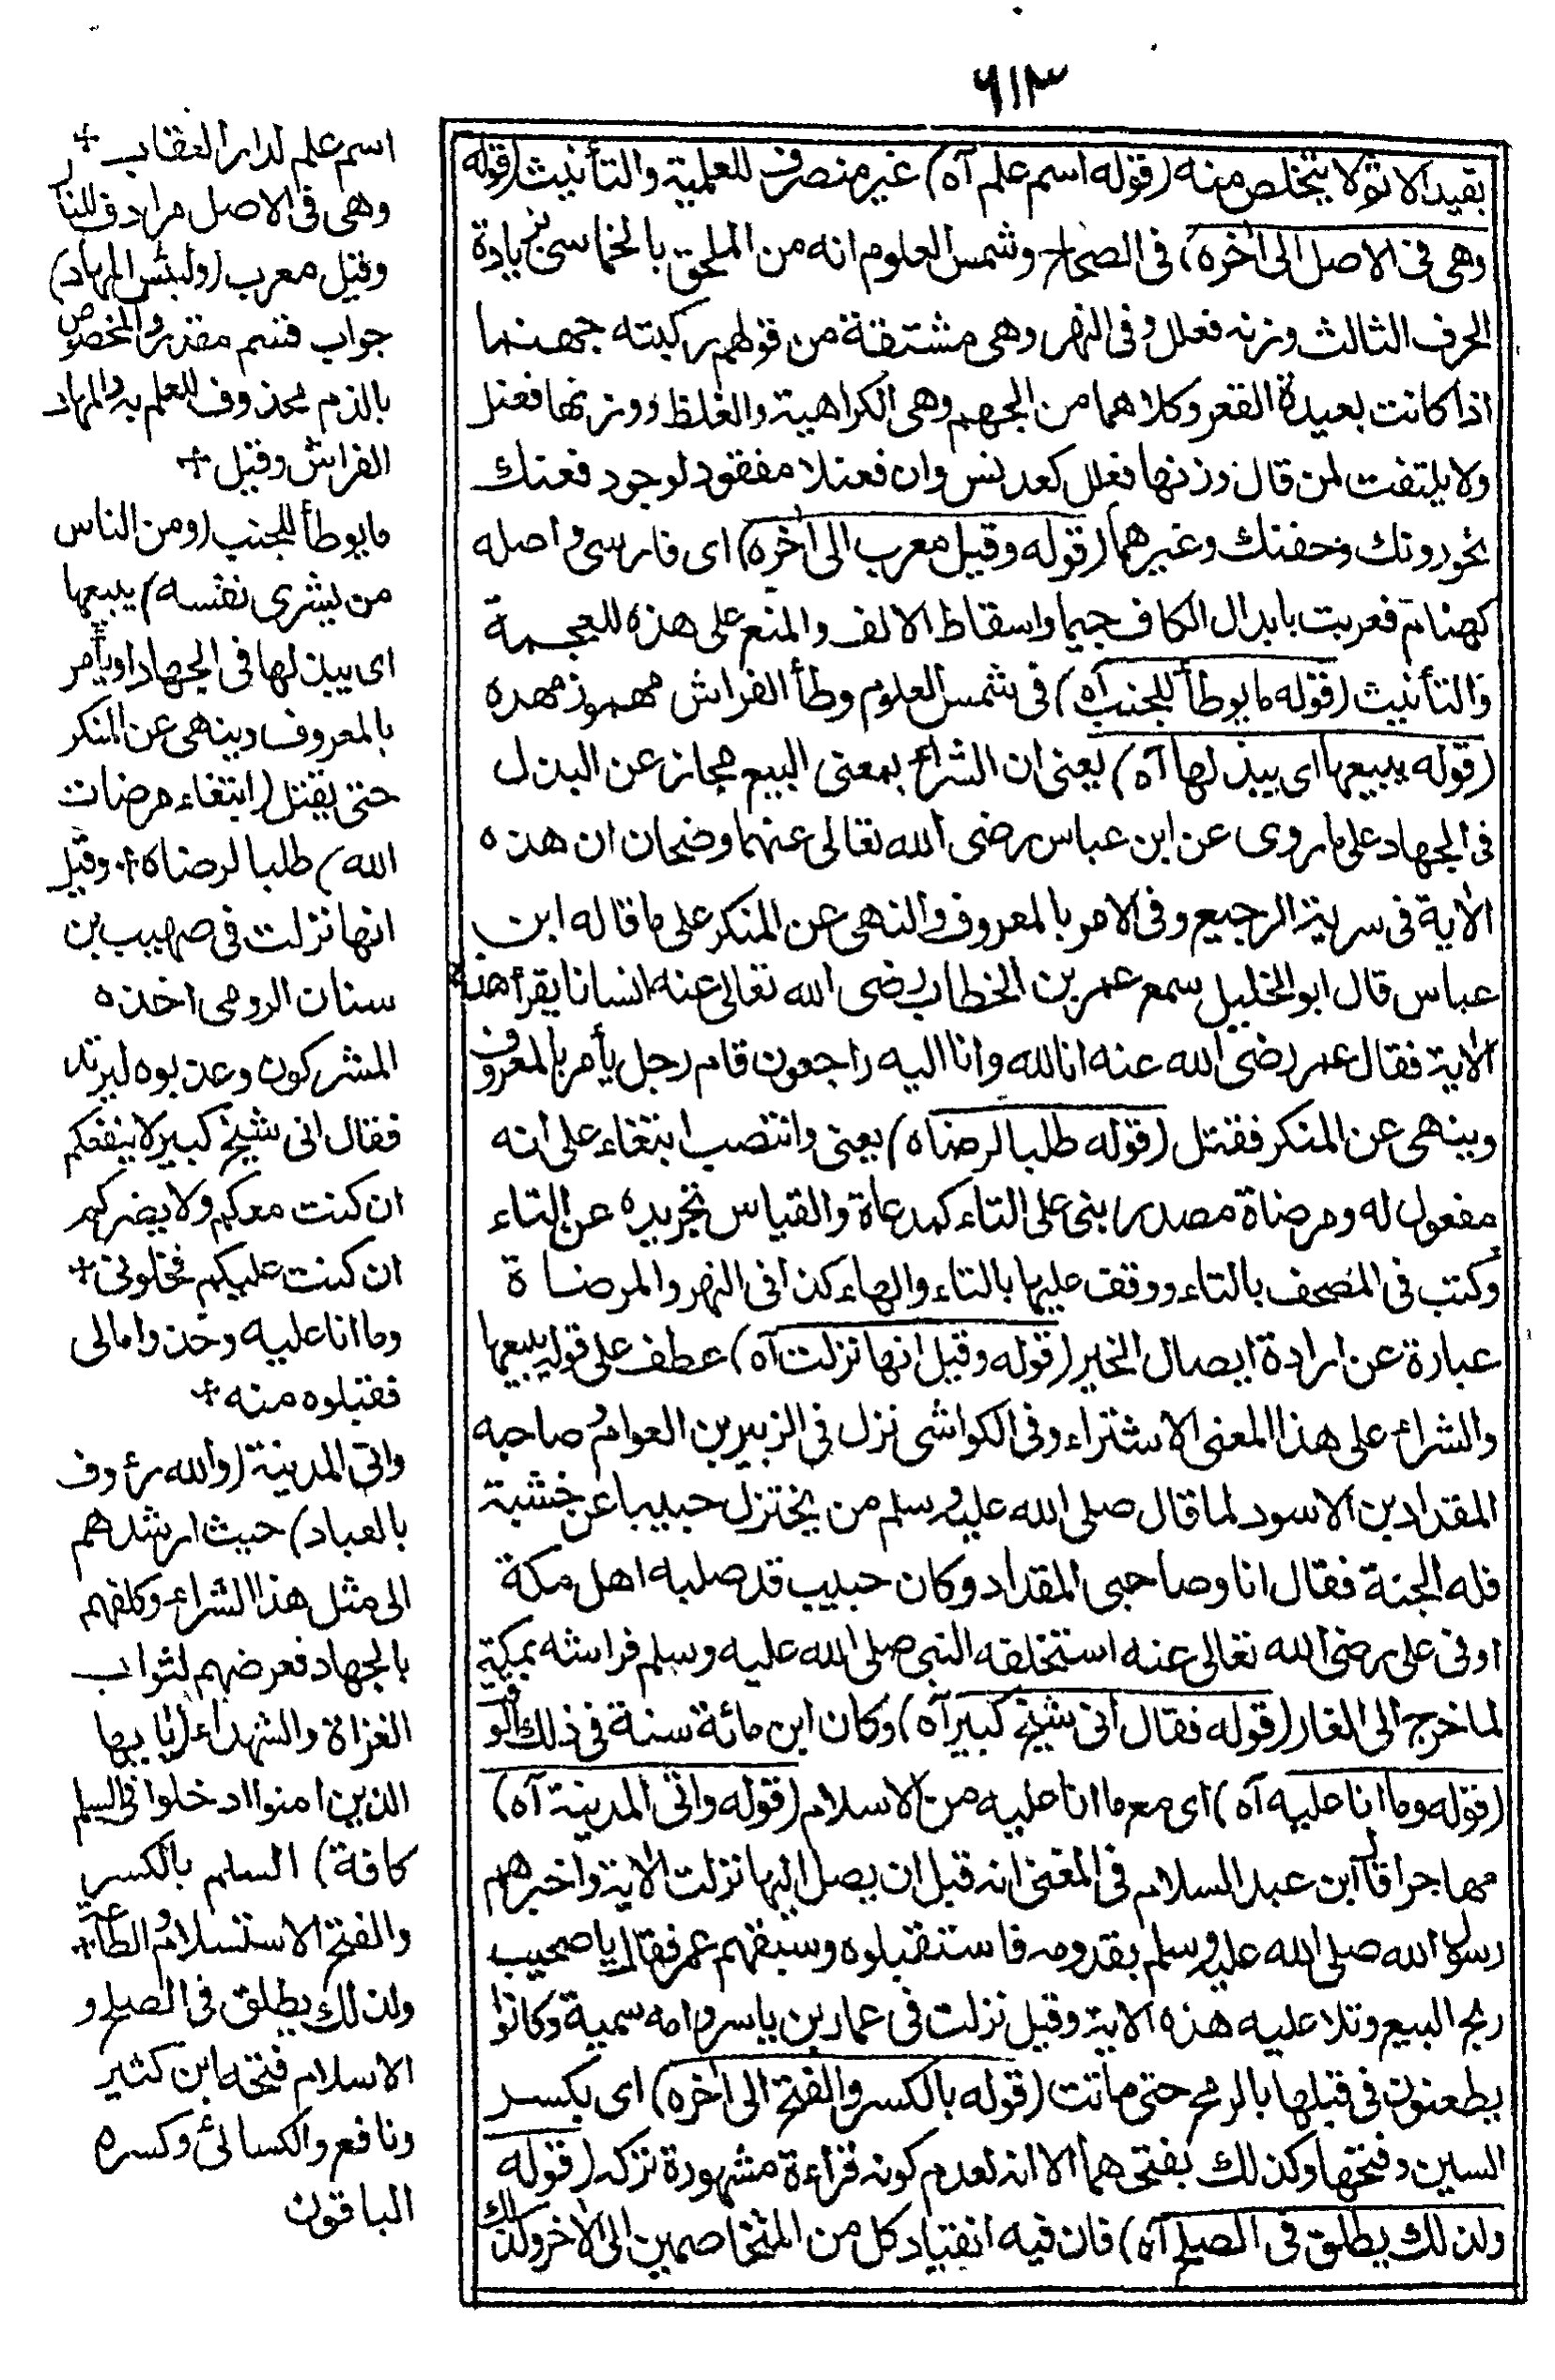 ٦١٣
بقيد الاثم لا يتخلص منه (قوله اسم علم آه) غير منصرف للعلمية والتأنيث (قوله
وهى فى الاصل الى آخره) فى الصحاح وشمس العلوم انه من الملحق بالخماسى بزيادة
الحرف الثالث وزنه فعلل وفى النهر وهى مشتقة من قولهم ركية جهنما
اذا كانت بعيدة القعر وكلاهما من الجهم وهى الكراهية والغلظ ووزنها فعنل
ولا يلتفت لمن قال وزنها فعلل كعدبس وان فعنلا مفقود لوجود فعنك
نحو دونك وحفنك وغيرهما (قوله وقيل معرب الى آخره) اى فارسى واصله
كهنام فعربت بابدال الكاف جيما واسقاط الالف والمنع على هذه للعجمة
والتأنيث (قوله ما يوطأ للجنب آه) فى شمس العلوم وطأ الفراش مهموز مهده
(قوله يبيعها اى يبذلها آه) يعنى ان الشراء بمعنى البيع مجاز عن البذل
فى الجهاد على ما روى عن ابن عباس رضى الله تعالى عنهما وضحاك ان هذه
الآية فى سرية الرجيع وفى الامر بالمعروف والنهى عن المنكر على ما قاله ابن
عباس قال ابو الخليل سمع عمر بن الخطاب رضى الله تعالى عنه انسانا يقرأ هذه
الآية فقال عمر رضى الله عنه انا لله وانا اليه راجعون قام رجل يأمر بالمعروف
وينهى عن المنكر فقتل (قوله طلبا لرضاه) يعنى وانتصب ابتغاء على انه
مفعول له ومرضاة مصدر بنى على التاء كمدعاة والقياس تجريده عن التاء
وكتب فى المصحف بالتاء ووقف عليها بالتاء والهاء كذا فى النهر والمرضاة
عبارة عن ارادة ايصال الخير (قوله وقيل انها نزلت آه) عطف على قوله يبيعها
والشراء على هذا المعنى الاشتراء وفى الكواشى نزل فى الزبير بن العوام وصاحبه
المقداد بن الاسود لما قال صلى الله عليه وسلم من يختزل حبيبا عن خشبة
فله الجنة فقال انا وصاحبى المقداد وكان حبيب قد صلبه اهل مكة
او فى على رضى الله تعالى عنه استخلفه النبى صلى الله عليه وسلم فراشه بمكة
لما خرج الى الغار (قوله فقال انى شيخ كبير آه) وكان ابن مائة سنة فى ذلك الوقت
(قوله وما انا عليه آه) اى مع ما انا عليه من الاسلام (قوله واتى المدينة آه)
مهاجرا قال ابن عبد السلام فى المغنى انه قبل ان يصل اليها نزلت الآية واخبرهم
رسول الله صلى الله عليه وسلم بقدومه فاستقبلوه وسبقهم عمر فقال يا صهيب
ربح البيع وتلا عليه هذه الآية وقيل نزلت فى عمار بن ياسر وامه سمية وكانوا
يطعنون فى قبلها بالرمح حتى ماتت (قوله بالكسر والفتح الى آخره) اى بكسر
السين وفتحها وكذلك بفتحهما الا انه لعدم كونه قراءة مشهورة تركه (قوله
ولذلك يطلق فى الصلح آه) فان فيه انقياد كل من المتخاصمين الى الآخر وكذلك
اسم علم لدار العقاب +
وهى فى الاصل مرادف للنار
وقيل معرب (ولبئس المهاد)
جواب قسم مقدر والمخصوص
بالذم محذوف للعلم به والمهاد
الفراش وقيل +
ما يوطأ للجنب (ومن الناس
من يشرى نفسه) يبيعها
اى يبذلها فى الجهاد او يأمر
بالمعروف وينهى عن المنكر
حتى يقتل (ابتغاء مرضات
الله) طلبا لرضاه + وقيل
انها نزلت فى صهيب بن
سنان الرومى اخذه
المشركون وعذبوه ليرتد
فقال انى شيخ كبير لا ينفعكم
ان كنت معكم ولا يضركم
ان كنت عليكم فخلونى +
وما انا عليه وخذوا مالى
فقبلوه منه +
واتى المدينة (والله رءوف
بالعباد) حيث ارشدهم
الى مثل هذا الشراء وكلفهم
بالجهاد فعرضهم لثواب
الغزاة والشهداء (يا ايها
الذين امنوا ادخلوا فى السلم
كافة) السلم بالكسر
والفتح الاستسلام والطاعة +
ولذلك يطلق فى الصلح و
الاسلام فتحه ابن كثير
ونافع والكسائى وكسره
الباقون